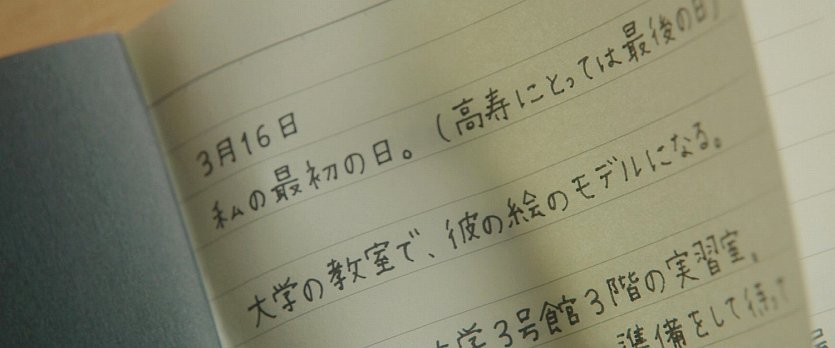 3月16日
私の最初の日。(高寿にとっては最後の日)
大学の教室で、彼の絵のモデルになる。
大学3号館3階の実習室。
準備をして待って